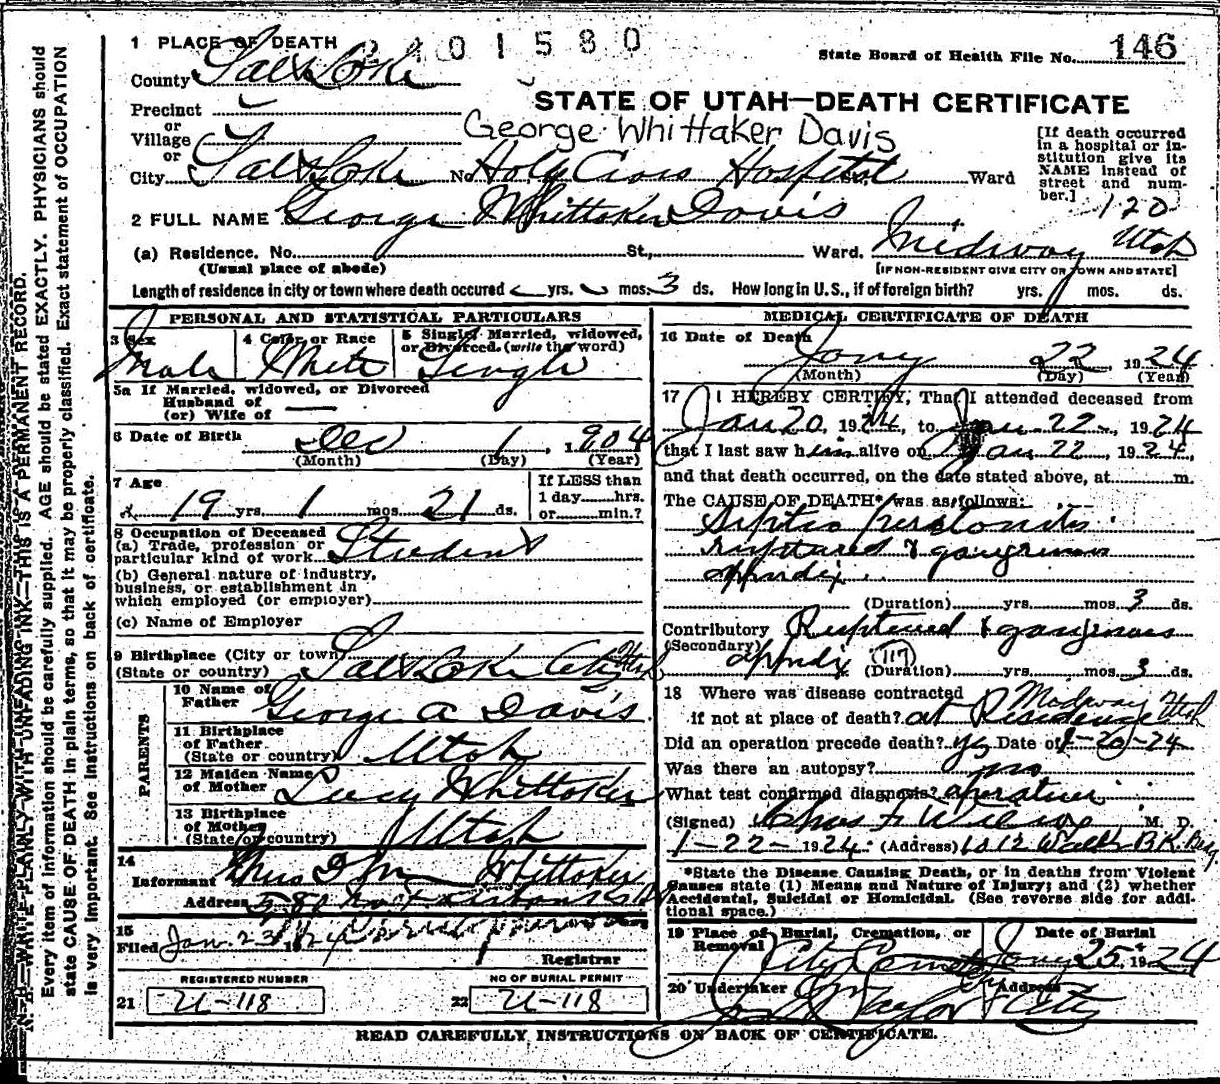 1 PLACE OF DEATH 2401580
State Board of Health File No. 146
County Salt Lake
STATE OF UTAH—DEATH CERTIFICATE
Precinct
or
Village
George Whittaker Davis
or
City Salt Lake No. Holy Cross Hospital St., Ward
[If death occurred
in a hospital or in-
stitution give its
NAME instead of
street and num-
ber.]
120
2 FULL NAME George Whittaker Davis
(a) Residence. No. St., Ward. Midway Utah
(Usual place of abode)
[IF NON-RESIDENT GIVE CITY OR TOWN AND STATE]
Length of residence in city or town where death occured yrs. mos. 3 ds. How long in U. S., if of foreign birth? yrs. mos. ds.
PERSONAL AND STATISTICAL PARTICULARS
3 Sex
Male
4 Color or Race
White
5 Single, Married, widowed,
or Divorced. (write the word)
Single
5a If Married, widowed, or Divorced
Husband of
(or) Wife of
6 Date of Birth Dec 1, 1904
(Month) (Day) (Year)
7 Age
19 yrs. 1 mos. 21 ds.
If LESS than
1 day hrs.
or min.?
8 Occupation of Deceased
(a) Trade, profession or
particular kind of work Student
(b) General nature of industry,
business, or establishment in
which employed (or employer)
(c) Name of Employer
9 Birthplace (City or town)
(State or country) Salt Lake City Utah
PARENTS
10 Name of
Father George A Davis
11 Birthplace
of Father
(State or country) Utah
12 Maiden Name
of Mother Lucy Whittaker
13 Birthplace
of Mother
(State or country) Utah
14
Informant Whittaker
Address
15
Filed Jan. 23 1924
Registrar
REGISTERED NUMBER
21 U-118
NO OF BURIAL PERMIT
22 U-118
MEDICAL CERTIFICATE OF DEATH
16 Date of Death
Jany 22 1924
(Month) (Day) (Year)
17 I HEREBY CERTIFY, That I attended deceased from
Jan 20, 1924, to Jan 22, 1924
that I last saw him alive on Jan 22, 1924,
and that death occurred, on the date stated above, at m.
The CAUSE OF DEATH* was as follows:
Septic peritonitis
ruptured & gangrenous
appendix
(Duration) yrs. mos. 3 ds.
Contributory Ruptured & gangrenous
(Secondary) appendix 117 (Duration) yrs. mos. 3 ds.
18 Where was disease contracted Midway Utah
if not at place of death? at Residence
Did an operation precede death? yes Date of 1-20-24
Was there an autopsy? no
What test confirmed diagnosis? operation
(Signed) Chas F M. D.
1-22-1924 (Address) 1012 Walker BK. Bldg
*State the Disease Causing Death, or in deaths from Violent
Causes state (1) Means and Nature of Injury; and (2) whether
Accidental, Suicidal or Homicidal. (See reverse side for addi-
tional space.)
19 Place of Burial, Cremation, or
Removal
City Cemetery
Date of Burial
Jany 25, 1924
20 Undertaker Address
Taylor City
READ CAREFULLY INSTRUCTIONS ON BACK OF CERTIFICATE.
N. B.—WRITE PLAINLY WITH UNFADING INK—THIS IS A PERMANENT RECORD.
Every item of information should be carefully supplied. AGE should be stated EXACTLY. PHYSICIANS should
state CAUSE OF DEATH in plain terms, so that it may be properly classified. Exact statement of OCCUPATION
is very important. See instructions on back of certificate.